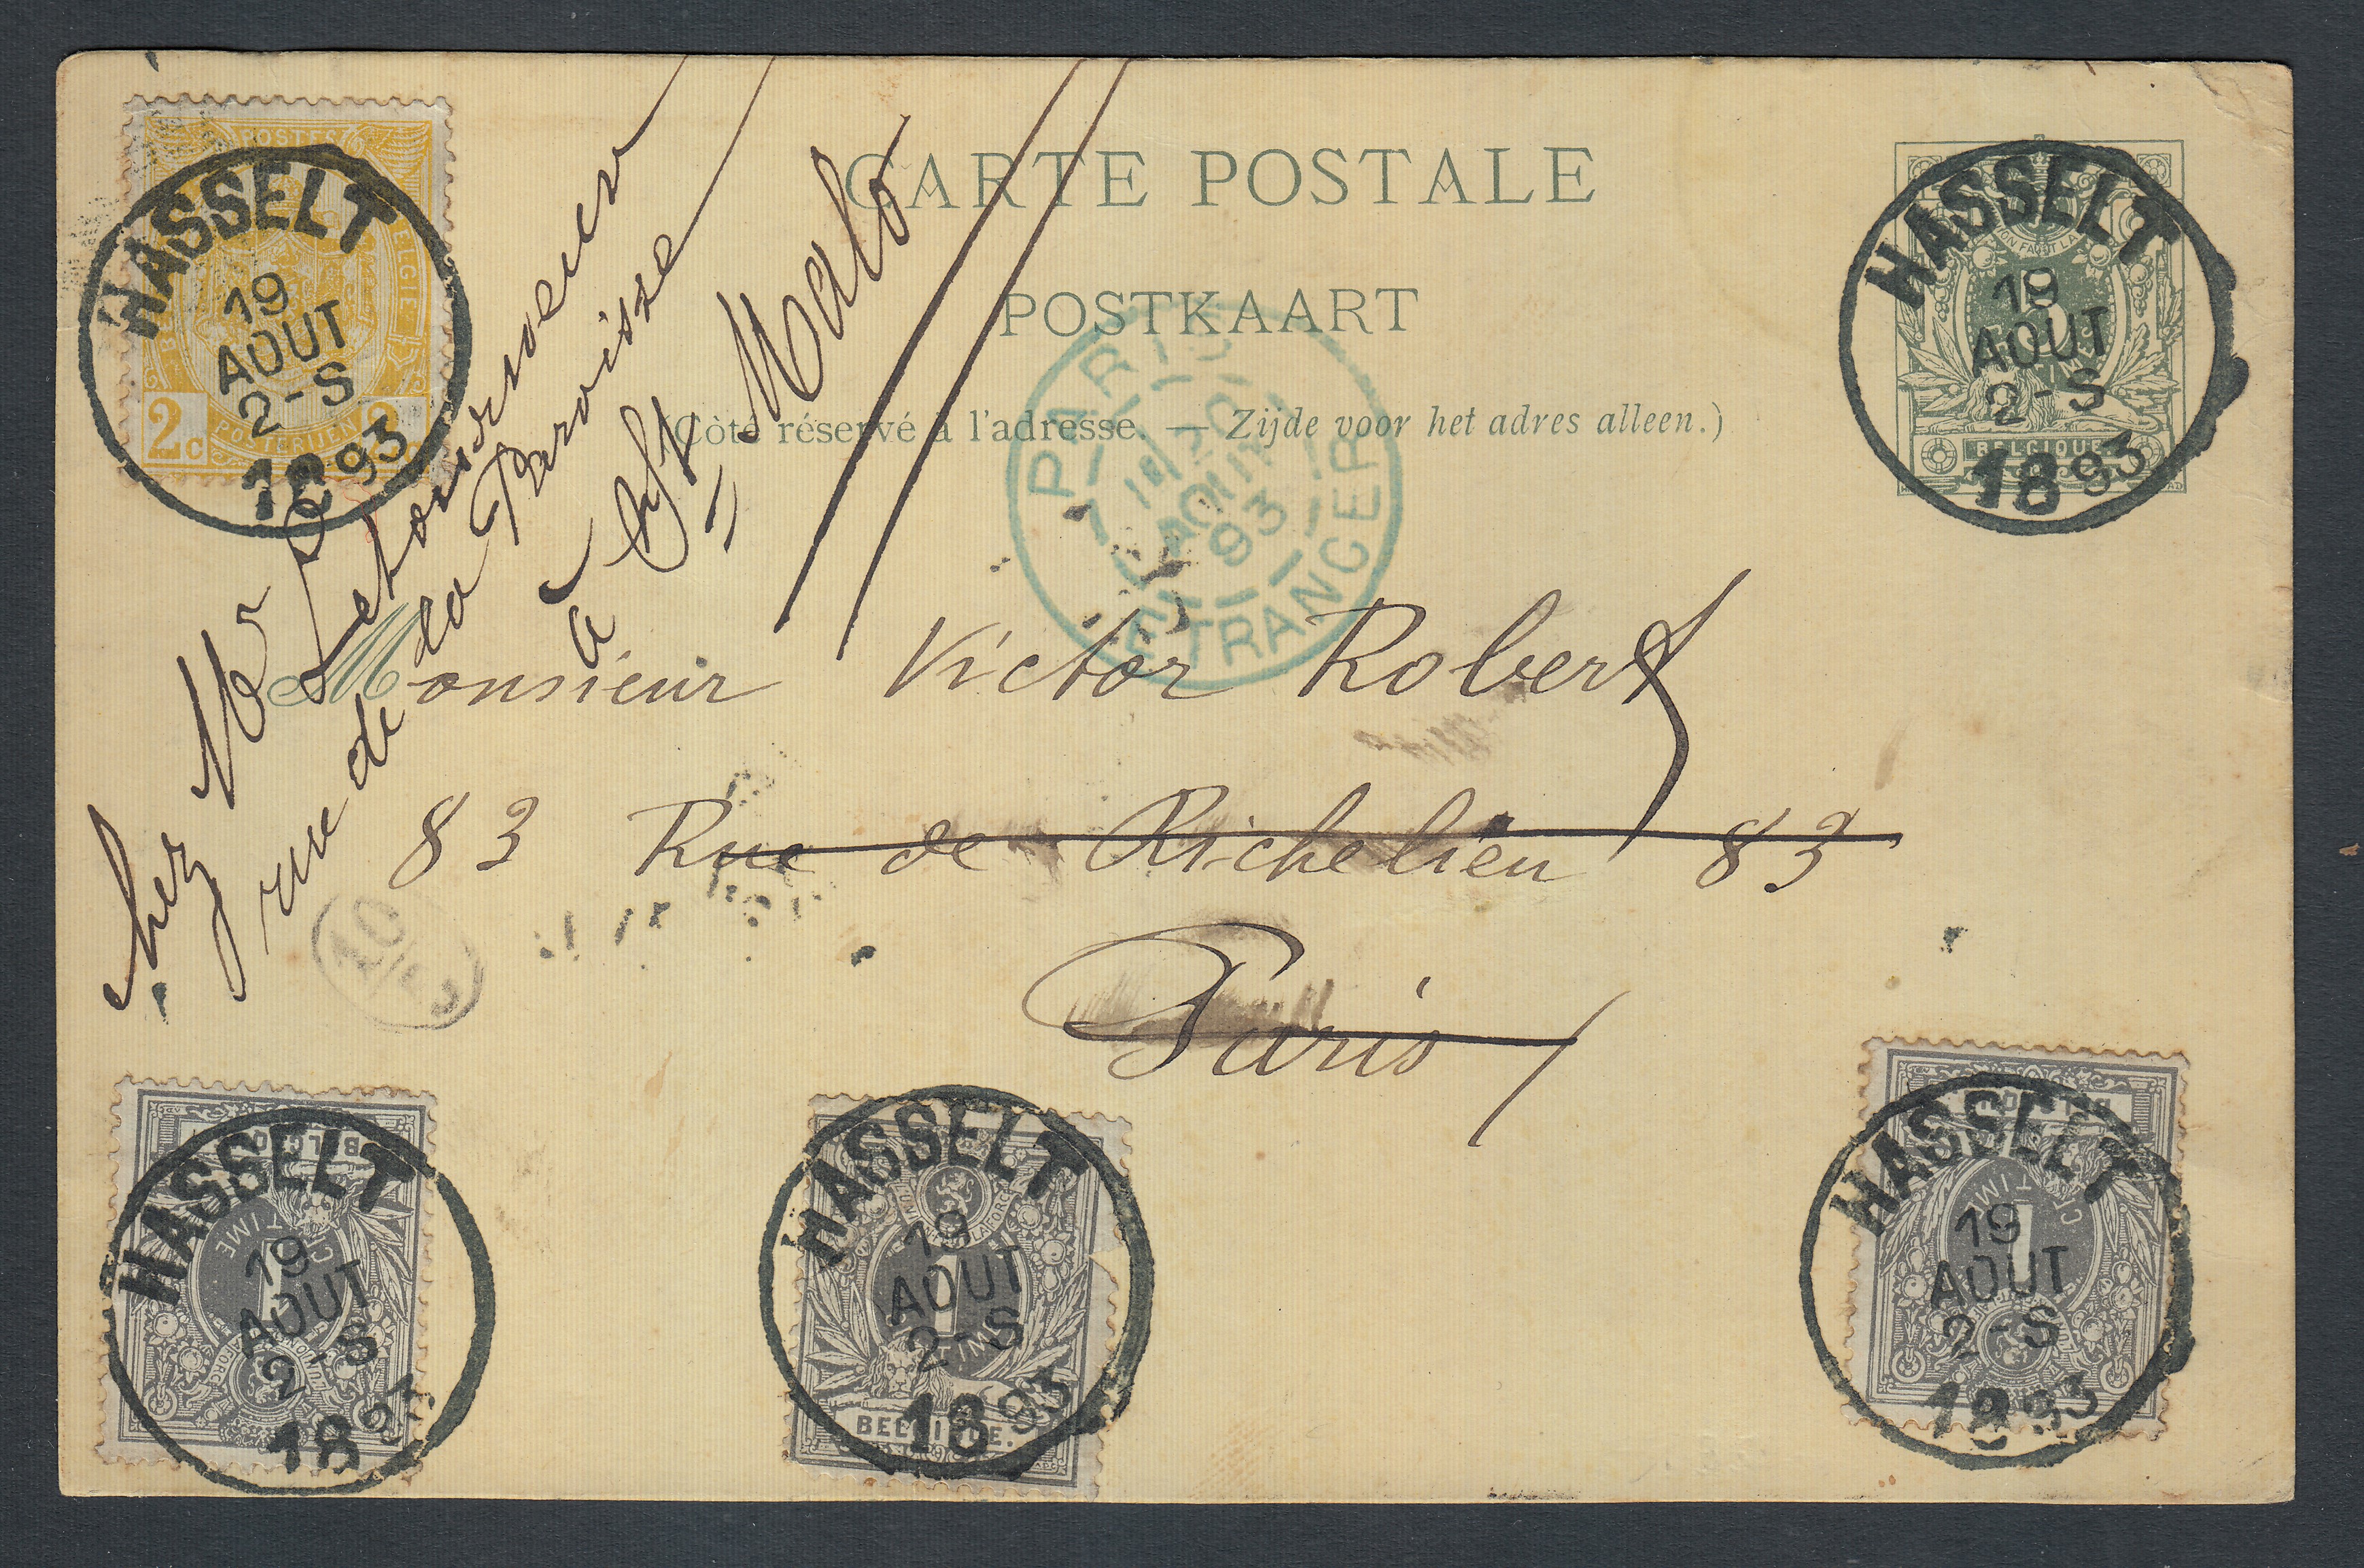 POSTES
BELGIE
2c
POSTERIJEN
HASSELT
19
AOUT
2-S
1893
CARTE POSTALE
POSTKAART
(Côté réservé à l'adresse. — Zijde voor het adres alleen.)
HASSELT
19
AOUT
2-S
1893
BELGIQUE
PARIS
AOUT
93
ETRANGER
chez Mr
rue de la Paroisse
à St. Malo
Monsieur Victor Robert
83 Rue de Richelieu 83
Paris
HASSELT
19
AOUT
2-S
1893
HASSELT
19
AOUT
2-S
1893
1
BELGIQUE.
HASSELT
19
AOUT
2-S
1893
1